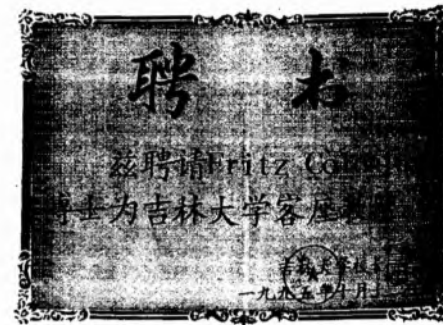 聘 书
兹聘请Fritz
博士为吉林大学客座教
吉林大学校长
一九九五年十月